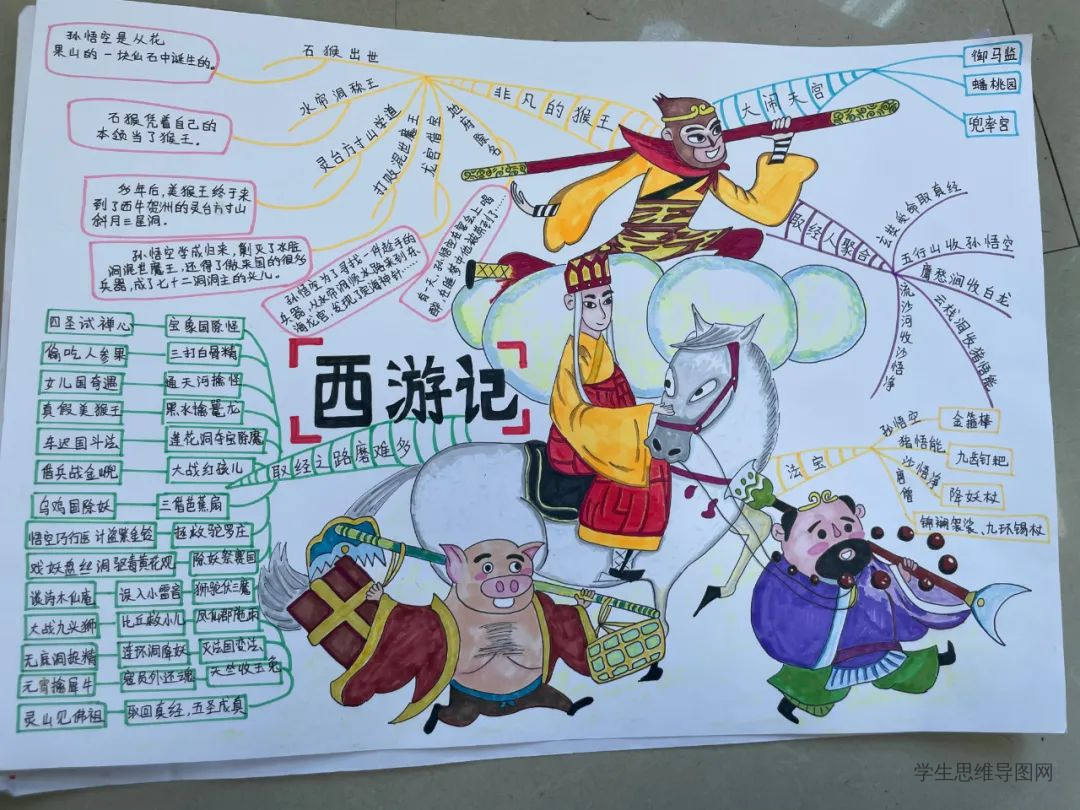 西游记
非凡的猴王
石猴出世
孙悟空是从花
果山的一块仙石中诞生的。
水帘洞称王
石猴凭着自己的
本领当了猴王。
灵台方寸山学道
多年后,美猴王终于来
到了西牛贺洲的灵台方寸山
斜月三星洞。
打败混世魔王
孙悟空学成归来,剿灭了水脏
洞混世魔王,还得了傲来国的很多
兵器,成了七十二洞洞主的头儿。
龙宫借宝
孙悟空为了寻找一件拉手的
兵器,从水帘洞顺水跑来到东
海龙宫,发现了定海神针……
地府除名
有一天,孙悟空在宴会上喝
醉,在睡梦中他被带到了……
大闹天宫
御马监
蟠桃园
兜率宫
取经人聚合
玄奘受命取真经
五行山收孙悟空
鹰愁涧收白龙
云栈洞收猪悟能
流沙河收沙悟净
法宝
孙悟空
金箍棒
猪悟能
九齿钉耙
沙悟净
降妖杖
唐僧
锦斓袈裟、九环锡杖
取经之路磨难多
四圣试禅心
宝象国除怪
偷吃人参果
三打白骨精
女儿国奇遇
通天河擒怪
真假美猴王
黑水擒鼍龙
车迟国斗法
莲花洞夺宝除魔
借兵战金兜
大战红孩儿
乌鸡国除妖
三借芭蕉扇
悟空巧行医 计盗紫金铃
拯救驼罗庄
戏妖盘丝洞 驱毒黄花观
除妖祭赛国
谈诗木仙庵
误入小雷音
狮驼伏三魔
大战九头狮
比丘救小儿
凤仙郡施雨
无底洞捉精
连环洞降妖
灭法国变法
元宵擒犀牛
寇员外还魂
天竺收玉兔
灵山见佛祖
取回真经,五圣成真
学生思维导图网